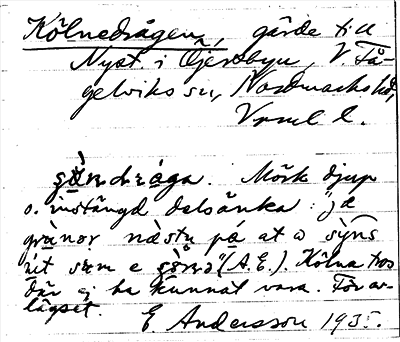 Kölnedrågen, gärde till
Nyst. i Öjersbyn, V. Få-
gelviks sn, Nordmarks hd,
Vrml l.
şö̀ndrǻga. Mörk djup
o. instängd dalsänka: "ja
grànor næstu på at ə sỳns
nit sum e şö̀nə" (A.E.). Kölna tros
där ej ha kunnat vara. För av-
lägset.
E Andersson 1935.